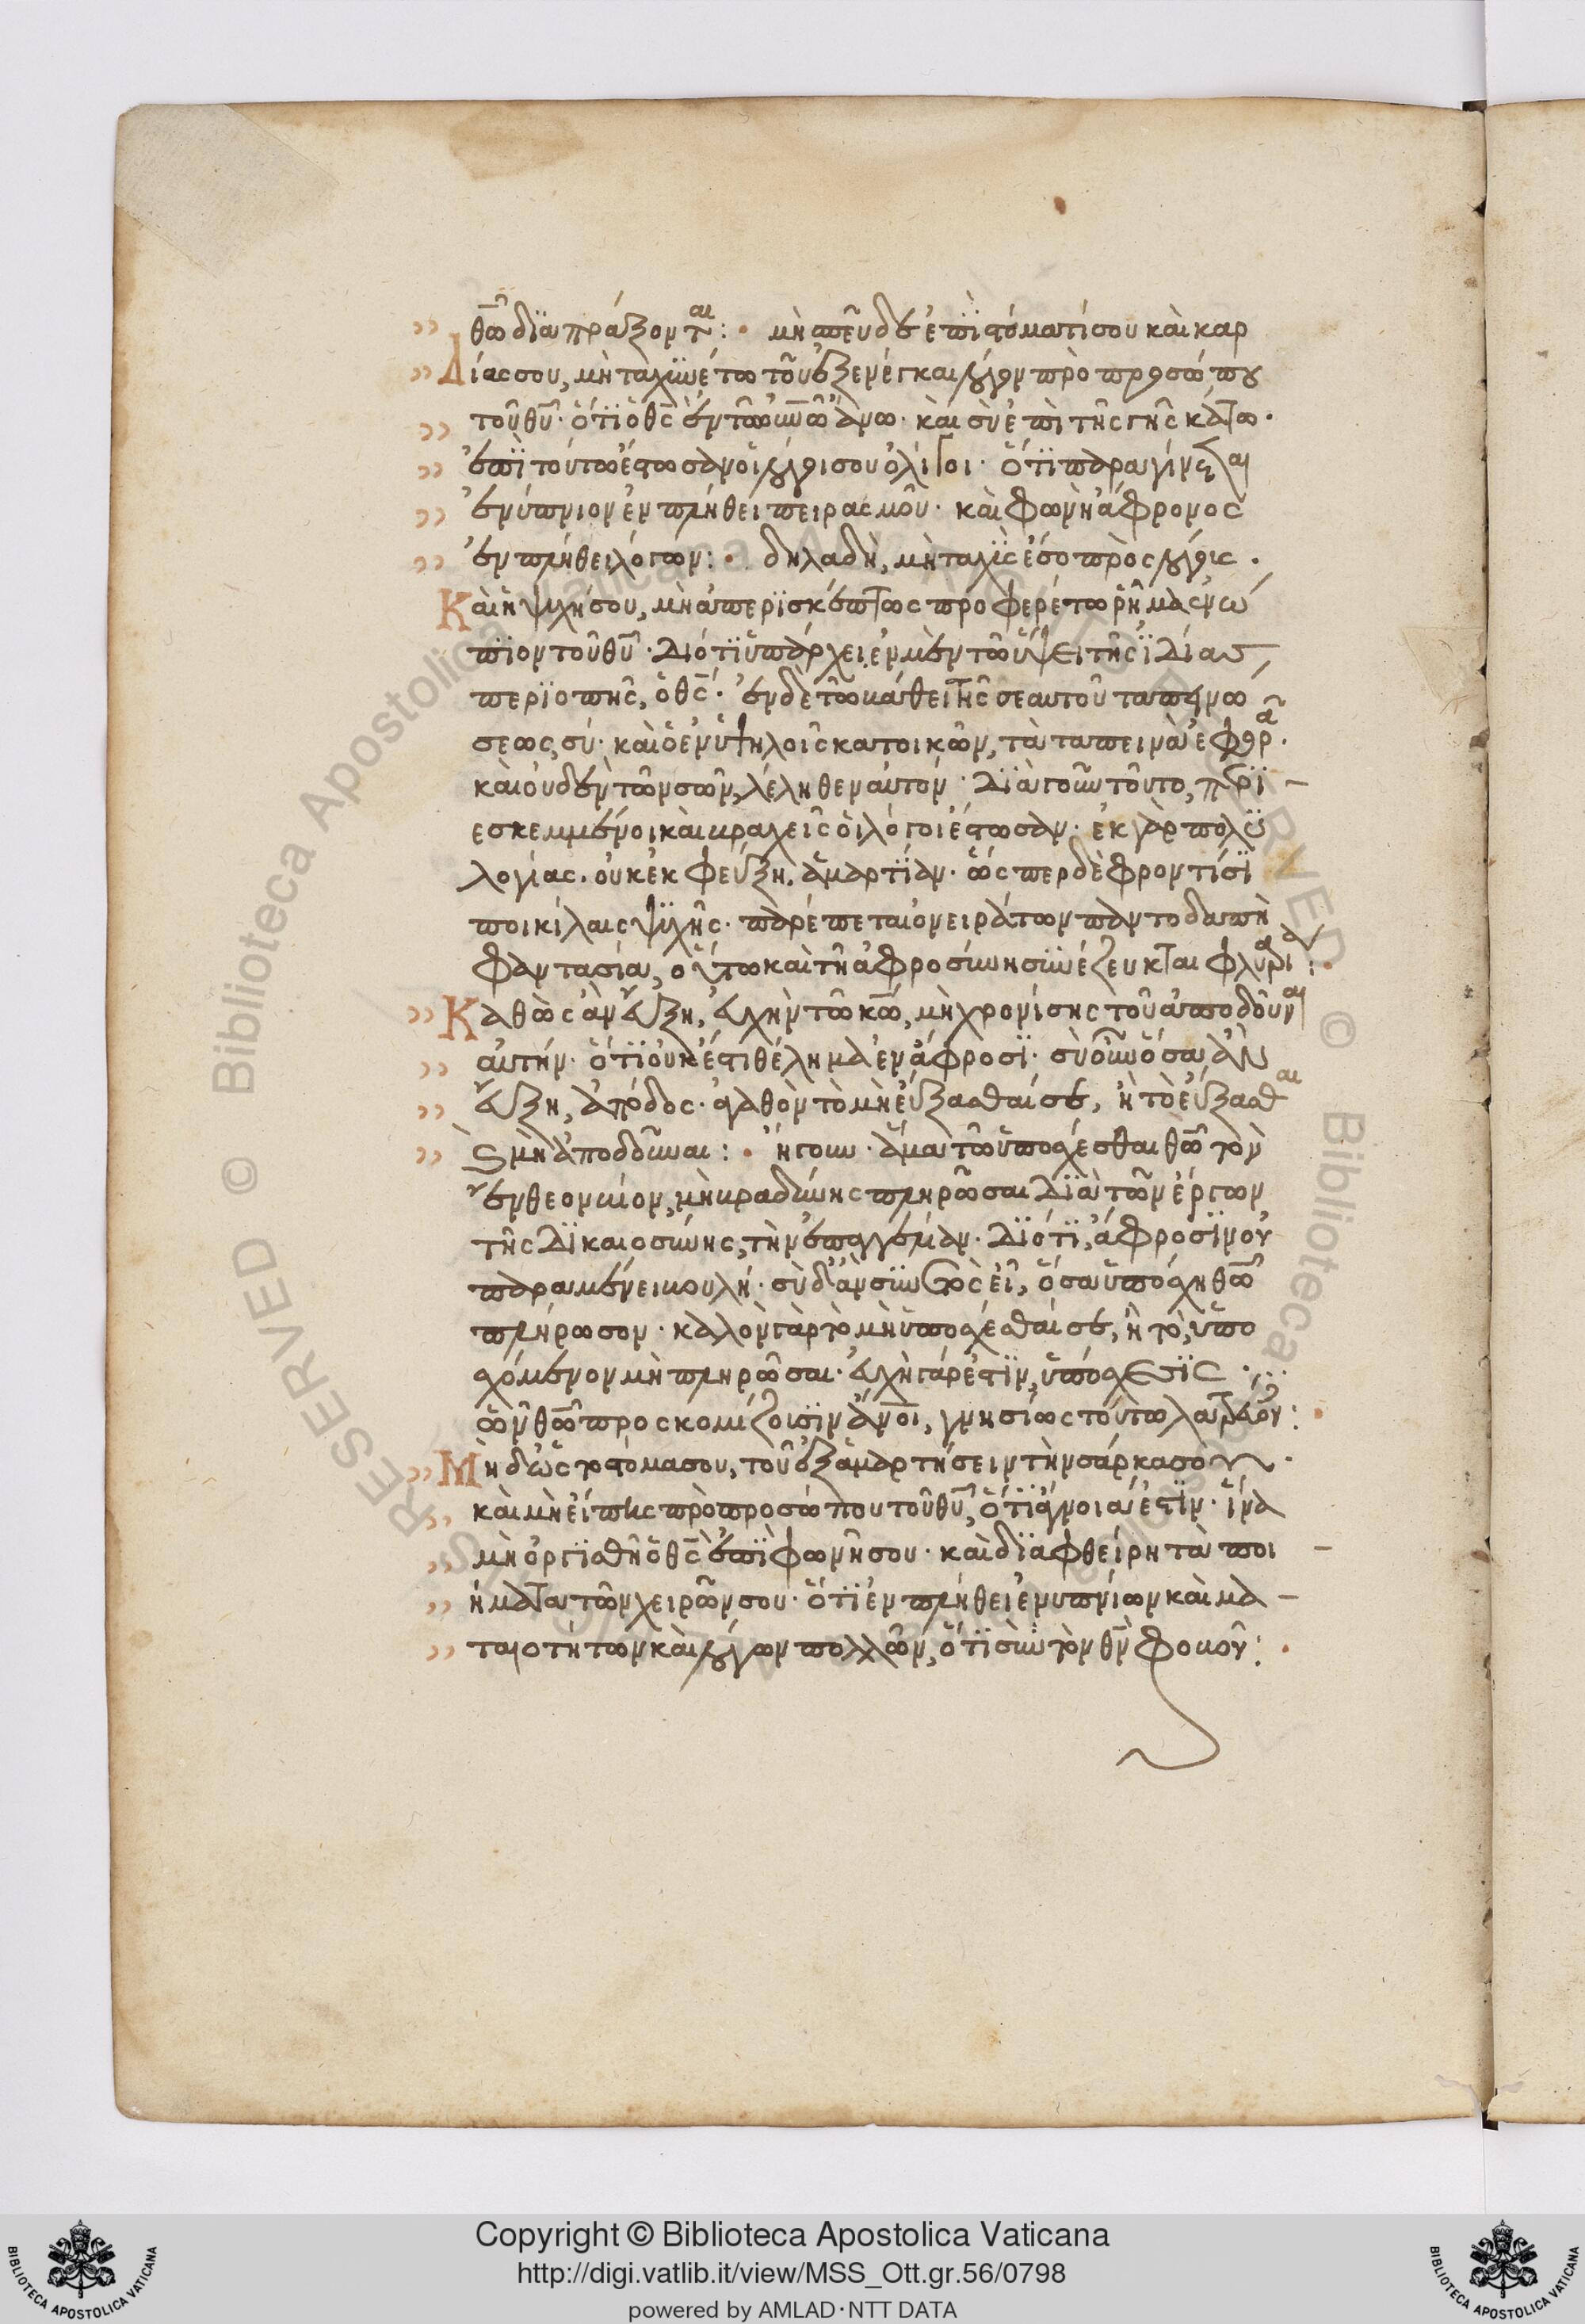 θῶ διαπράξονται: μὴ σπεῦδε ἐπὶ στόματί σου καὶ καρ
δίας σου, μὴ ταχυνέτω τοῦ ἐξενέγκαι λόγον πρὸ προσώπου
τοῦ θυ· ὅτι ὁ θς ἐν τῶ οὐνῶ ἄνω· καὶ σὺ ἐπὶ τῆς γῆς κάτω.
ἐπὶ τούτω ἔστωσαν οἱ λόγοι σου ὀλίγοι· ὅτι παραγίνεται
ἐνύπνιον ἐν πλήθει πειρασμοῦ· καὶ φωνὴ ἄφρονος
ἐν πλήθει λόγων: δηλαδὴ, μὴ ταχὺς ἔσο πρὸς λόγους.
Καὶ ἡ ψυχή σου, μὴ ἀπερισκέπτως προφερέτω ῥῆμα ἐνώ
πιον τοῦ θυ· διότι ὑπάρχει, ἐν μὲν τῶ ὕψει τῆς ἰδίας
περιοπῆς, ὁ θς· ἐν δὲ τῶ βάθει τῆς σεαυτοῦ ταπεινώ
σεως, σύ· καὶ ὁ ἐν ὑψηλοῖς κατοικῶν, τὰ ταπεινὰ ἐφορᾶ.
καὶ οὐδὲν τῶν σῶν, λέληθεν αὐτόν· διὰ γοῦν τοῦτο, περι
εσκεμμένοι καὶ βραχεῖς οἱ λόγοι ἔστωσαν· ἐκ γὰρ πολυ
λογίας. οὐκ ἐκφεύξη ἁμαρτίαν· ὥσπερ δὲ φροντίσι
ποικίλαις ψυχῆς· παρέπεται ὀνειράτων παντοδαπὴ
φαντασία, οὕτω καὶ τῆ ἀφροσύνη συνέζευκται φλυαρία:
Καθὼς ἂν εὔξη, εὐχὴν τῶ κω, μὴ χρονίσης τοῦ ἀποδοῦναι
αὐτήν· ὅτι οὐκ ἔστι θέλημα ἐν ἄφροσι· σὺ οὖν ὅσα ἂν
εὔξη, ἀπόδος· ἀγαθὸν τὸ μὴ εὔξασθαί σε, ἢ τὸ εὔξασθαι
σε μὴ ἀποδοῦναι: ἤγουν· ἅμα τῶ ὑποσχέσθαι θῶ τὸν
ἔνθεον βίον, μὴ βραδύνης πληρῶσαι διὰ τῶν ἔργων
τῆς δικαιοσύνης, τὴν ἐπαγγελίαν· διότι, ἄφροσιν οὐ
παραμένει βουλή· σὺ δ' ἂν συνετὸς εἶ, ὅσα ὑπόσχη θῶ
πλήρωσον· καλὸν γὰρ τὸ μὴ ὑποσχέσθαί σε, ἢ τὸ, ὑπο
σχόμενον μὴ πληρῶσαι. εὐχὴ γάρ ἐστιν, ὑπόσχεσις
ὧν θῶ προσκομίζουσιν ἄνοι, γνησίως τούτω
Μὴ δῶς τὸ στόμα σου, τοῦ ἐξαμαρτήσειν τὴν σάρκα σου.
καὶ μὴ εἴπης πρὸ προσώπου τοῦ θυ, ὅτι ἄγνοιά ἐστιν· ἵνα
μὴ ὀργισθῆ ὁ θς ἐπὶ φωνῆ σου· καὶ διαφθείρη τὰ ποι
ήματα τῶν χειρῶν σου· ὅτι ἐν πλήθει ἐνυπνίων καὶ μα
ταιοτήτων καὶ λόγων πολλῶν, ὅτι σὺν τὸν θν φοβοῦ:
Copyright © Biblioteca Apostolica Vaticana
http://digi.vatlib.it/view/MSS_Ott.gr.56/0798
powered by AMLAD·NTT DATA